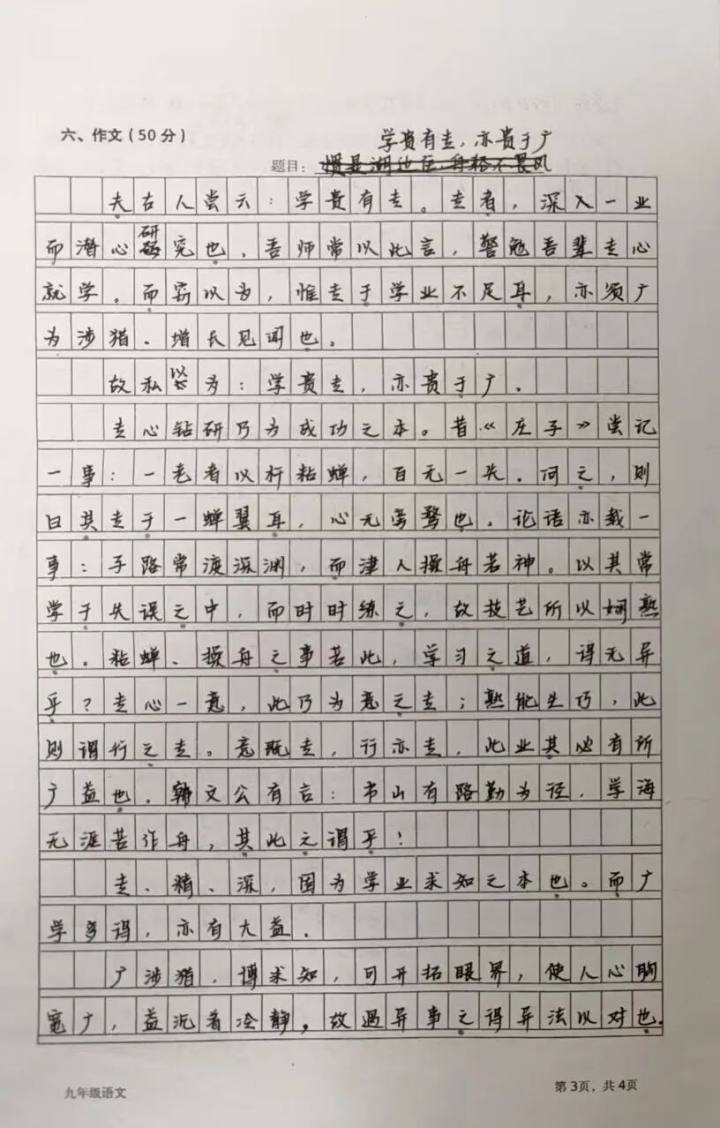 六、作文（50分）
学贵有专，亦贵于广
题目：
夫古人尝云：学贵有专。专者，深入一业
而潜心研究也，吾师常以此言，警勉吾辈专心
就学。而窃以为，惟专于学业不足耳，亦须广
为涉猎、增长见闻也。
故私以为：学贵专，亦贵于广。
专心钻研乃为成功之本。昔《庄子》尝记
一事：一老者以杆粘蝉，百无一失。问之，则
曰其专于一蝉翼耳，心无旁骛也。论语亦载一
事：子路常渡深渊，而津人操舟若神。以其常
学于失误之中，而时时练之，故技艺所以娴熟
也。粘蝉、操舟之事若此，学习之道，得无异
乎？专心一意，此乃为意之专；熟能生巧，此
则谓行之专。意既专，行亦专，此业其必有所
广益也。韩文公有言：书山有路勤为径，学海
无涯苦作舟，其此之谓乎！
专、精、深，固为学业求知之本也。而广
学多得，亦有大益。
广涉猎，博求知，可开拓眼界，使人心胸
宽广，益沉着冷静，故遇异事之得异法以对也。
九年级语文
第3页，共4页